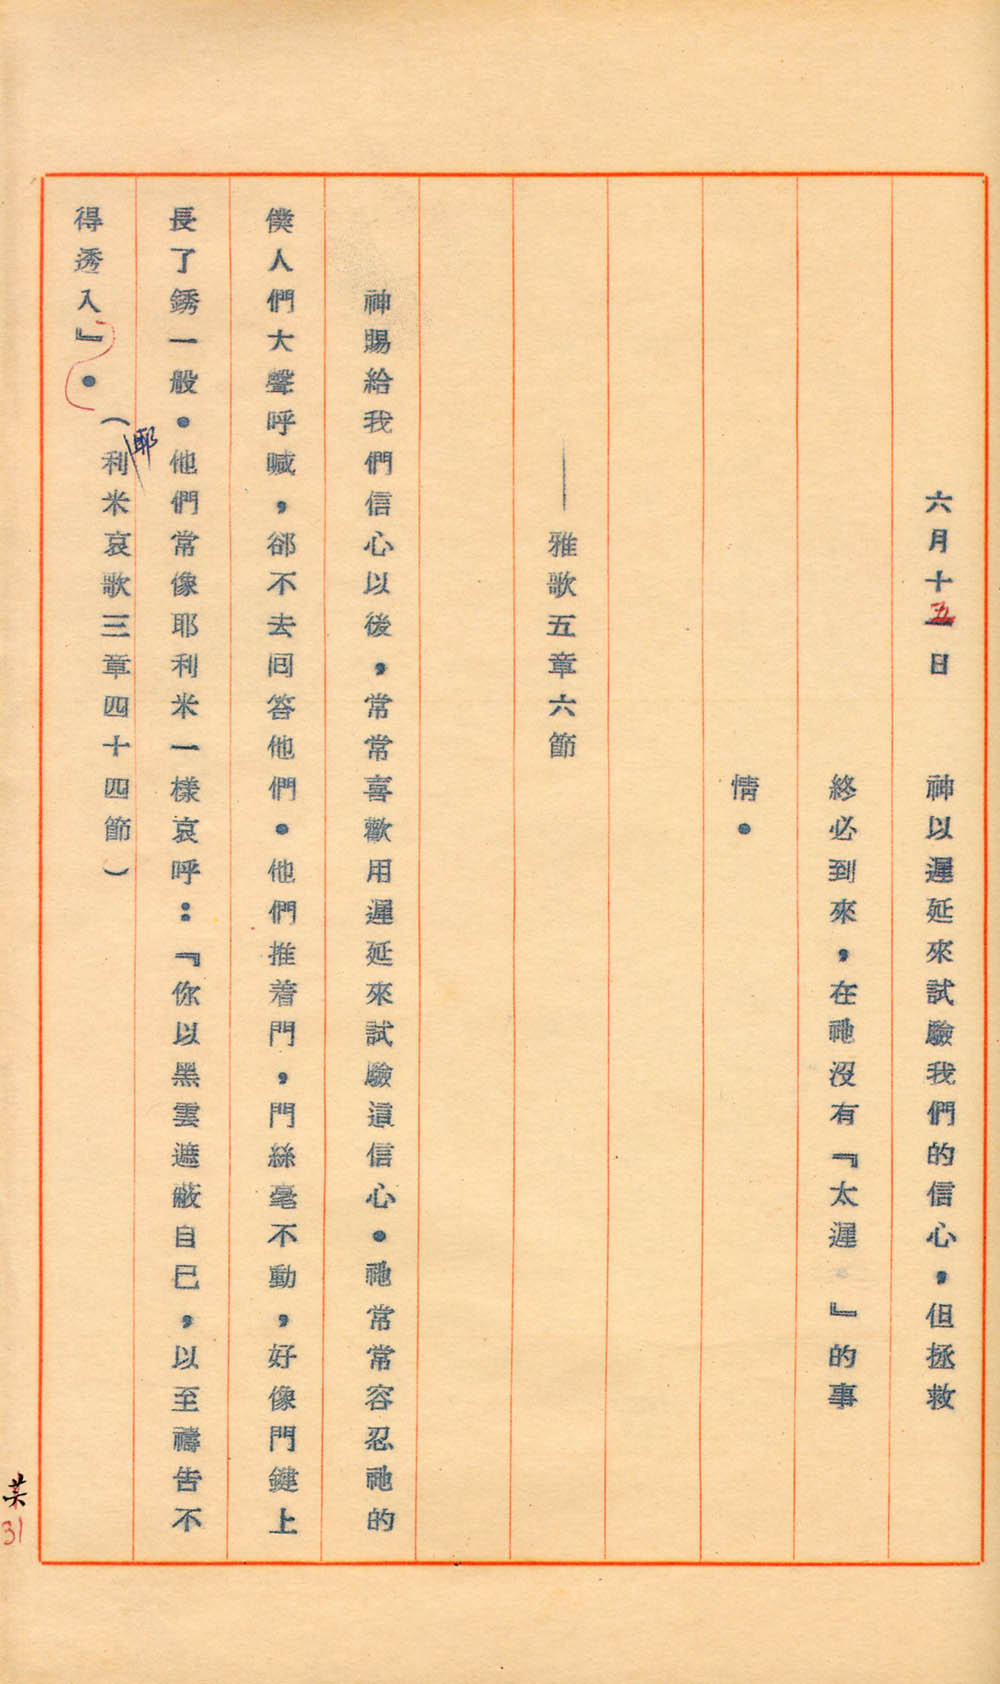 六月十五日　神以遲延來試驗我們的信心，但拯救
終必到來，在祂沒有『太遲。』的事
情。
——雅歌五章六節
神賜給我們信心以後，常常喜歡用遲延來試驗這信心。祂常常容忍祂的
僕人們大聲呼喊，郤不去回答他們。他們推着門，門絲毫不動，好像門鍵上
長了銹一般。他們常像耶利米一樣哀呼：『你以黑雲遮蔽自已，以至禱告不
得透入』。（耶利米哀歌三章四十四節）
31